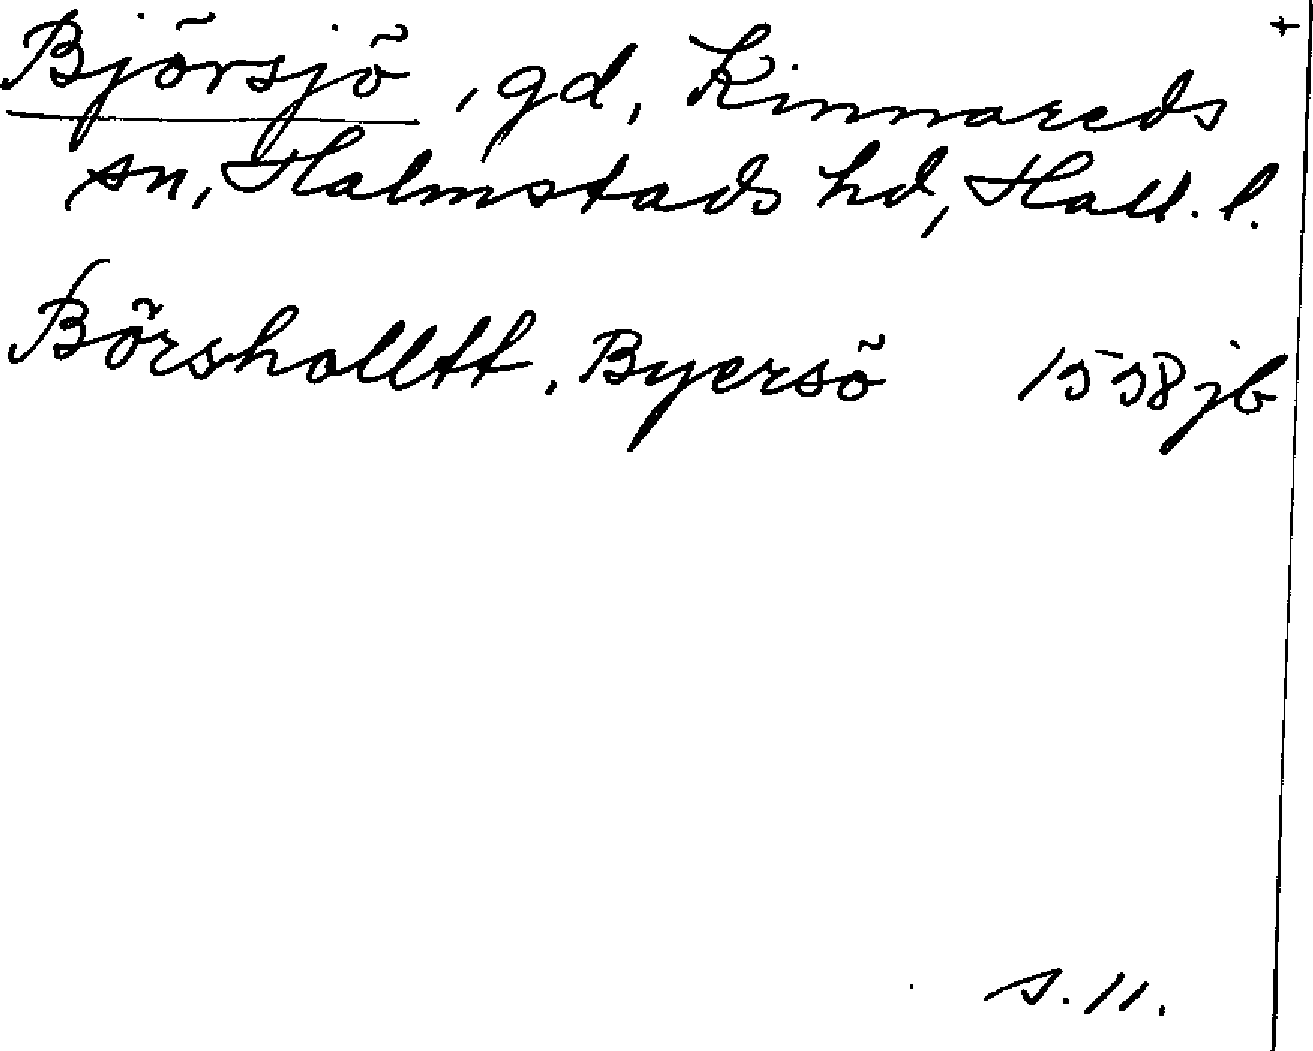 +
Björsjö, gd, Kinnareds
sn, Halmstads hd, Hall. l.
Börshalltt, Byersö 1538 jb
s. 11.